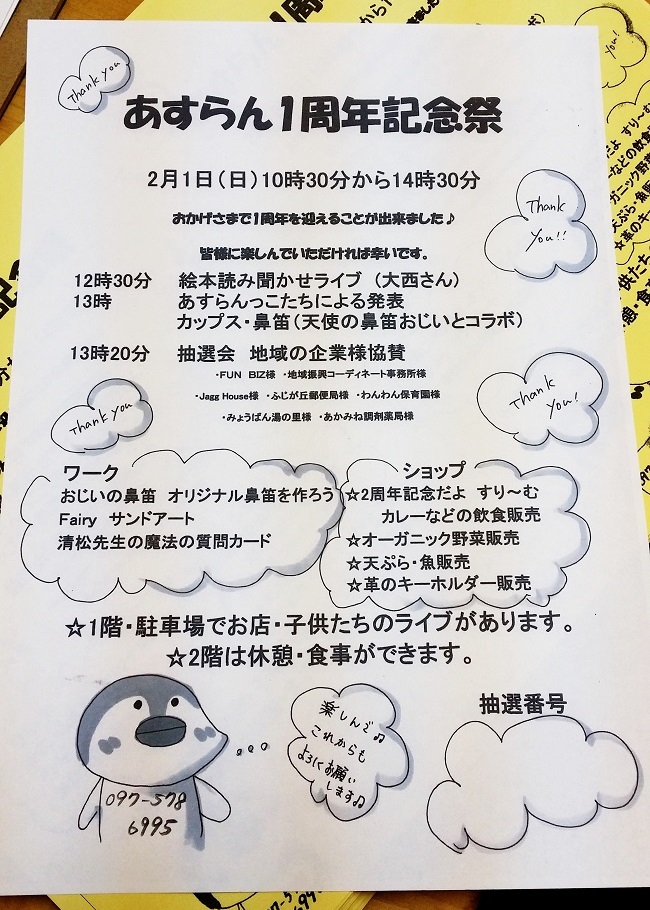 Thank you
あすらん1周年記念祭
2月1日(日)10時30分から14時30分
おかげさまで1周年を迎えることが出来ました♪
Thank You!!
皆様に楽しんでいただければ幸いです。
12時30分 絵本読み聞かせライブ (大西さん)
13時 あすらんっこたちによる発表
カップス・鼻笛(天使の鼻笛おじいとコラボ)
13時20分 抽選会 地域の企業様協賛
・FUN BIZ様 ・地域振興コーディネート事務所様
・Jagg House様 ・ふじが丘郵便局様 ・わんわん保育園様
・みょうばん湯の里様 ・あかみね調剤薬局様
Thank you
Thank You!
ワーク
おじいの鼻笛 オリジナル鼻笛を作ろう
Fairy サンドアート
清松先生の魔法の質問カード
ショップ
☆2周年記念だよ すり~む
カレーなどの飲食販売
☆オーガニック野菜販売
☆天ぷら・魚販売
☆革のキーホルダー販売
☆1階・駐車場でお店・子供たちのライブがあります。
☆2階は休憩・食事ができます。
097-578
6995
楽しんで♫
これからも
よろしくお願い
します♫
抽選番号